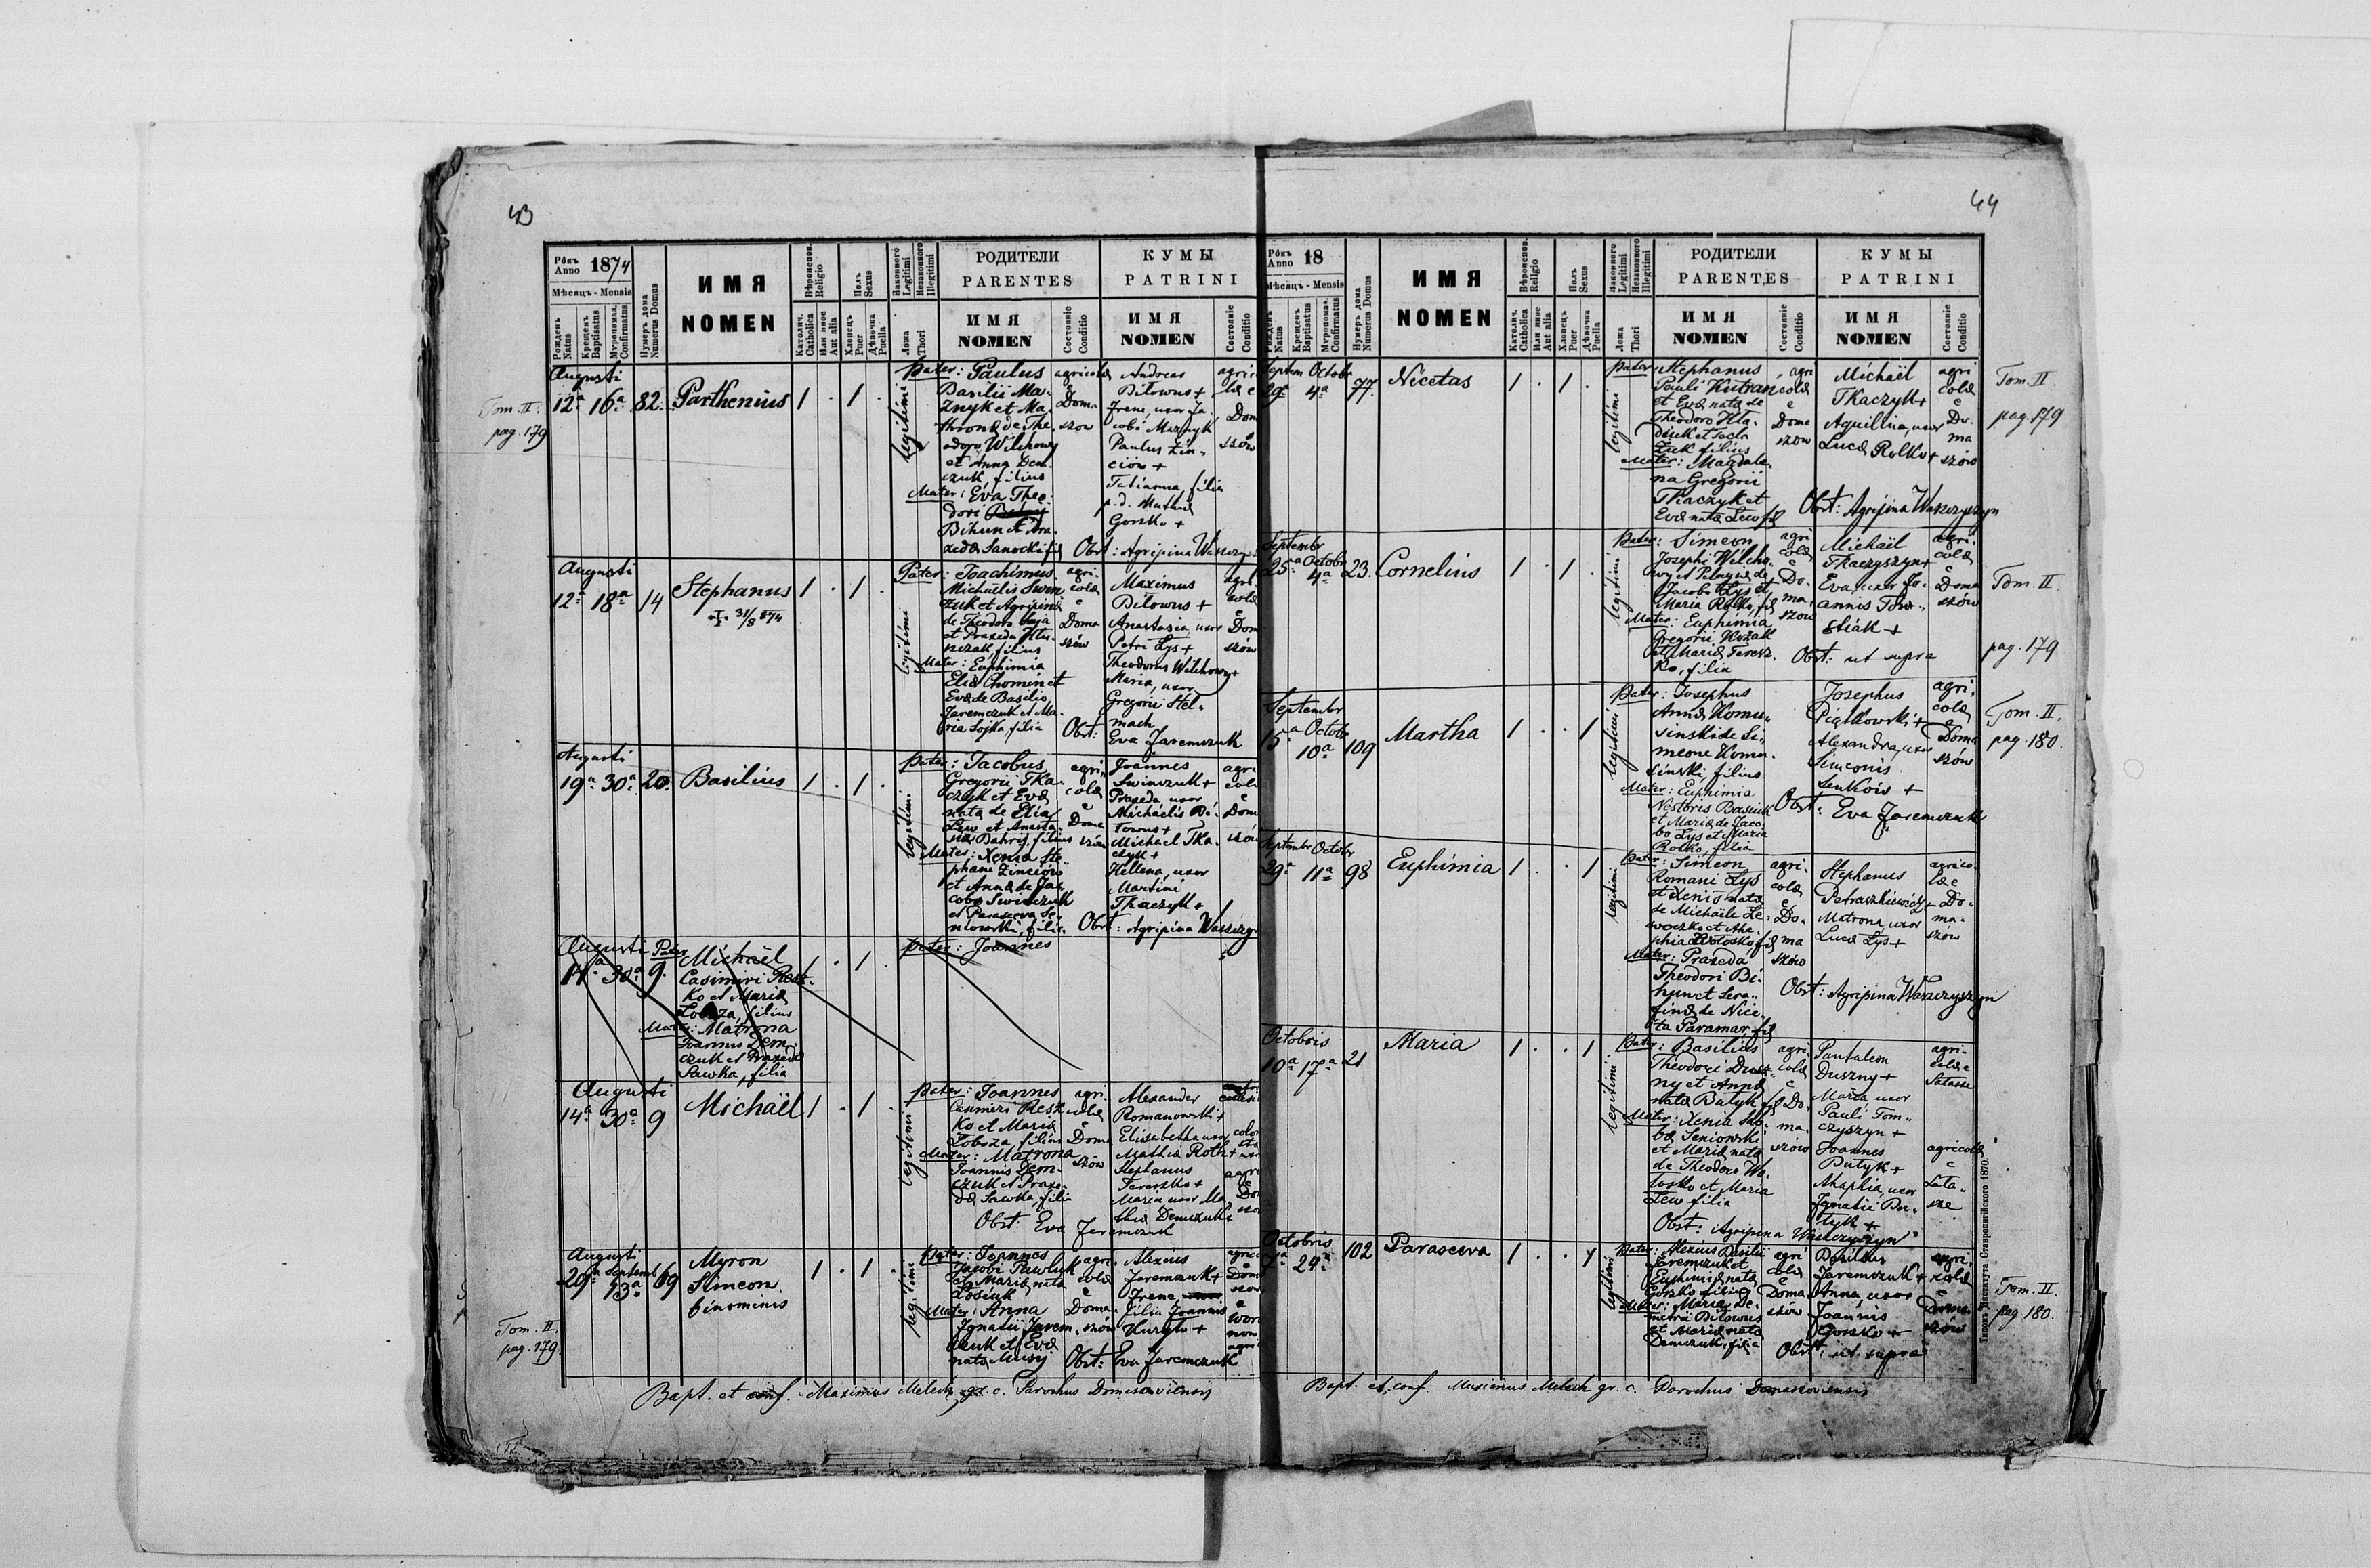 43
44
Рôкъ Anno 1874
Мѣсяцъ - Mensis
Рожденъ Natus
Крещенъ Baptisatus
Муропомаз. Confirmatus
Нумеръ дома Numerus Domus
ИМЯ
NOMEN
Вѣроиспов. Religio
Католич. Catholica
Или иное Aut alia
Полъ Sexus
Хлопецъ Puer
Дѣвочка Puella
Законного Legitimi
Незаконного Illegitimi
Ложа Thori
РОДИТЕЛИ
PARENTES
ИМЯ
NOMEN
Состояніе Conditio
КУМЫ
PATRINI
ИМЯ
NOMEN
Состояніе Conditio
Tom. II.
pag. 179
Augusti
12a 16a 82. Parthenius 1 . 1 . legitimi
Pater: Paulus
Basilii Ma-
znyk et Ma-
thronæ de The-
odoro Wilchowy
et Anna Dem-
czuk, filius
Mater: Eva Theo-
dori
Bihun et Pra-
xedæ Sanocki fil
agricolæ
e
Doma
szow
Andreas
Bilowus +
Irene, uxor Ja-
cobi Maznyk
Paulus Zin-
ciów +
Tatianna, filia
p.d. Mathæi
Gorzko +
Obst: Agripina Waszczy
Augusti
12a 18a 14 Stephanus 1 . 1 . legitimi
31/8 874
Pater: Joachimus
Michaelis Swin-
czuk et Agripinæ
de Theodoro Saja
et Praxeda Hlu-
szczak, filius
Mater: Euphimia
Eliæ Chomin et
Evæ de Basilio
Jaremczuk et Ma-
ria Sojka, filia
agri-
colæ
e
Doma
szów
Maximus
Bilowus +
Anastasia uxor
Petri Lys +
Theodorus Wilchowy +
Maria, uxor
Gregorii Stel-
mach
Obst:
Eva Jaremczuk
Augusti
19a 30a 20. Basilius 1 . 1 . legitimi
Pater: Jacobus
Gregorii Tka-
czyk et Evæ
nata de Elia
Lew et Anasta-
sia Bahrij, filius
Mater: Xenia Ste-
phani Zinciow
et Annæ de Ja-
cobo Swinczuk
et Parasceva Se-
niowski, filia
agri-
colæ
e
Doma
szów
Joannes
Swinczuk +
Praxeda uxor
Michaelis Bi-
lowus +
Michael Tka-
czyk +
Hellena, uxor
Martini
Tkaczyk +
Obst: Agripina Waszczy
Augusti
14a 30a 9. Michaël 1 . 1 .
Pater
Casimiri Resz-
ko et Mariæ
Loboza, filius
Mater: Matrona
Joannis Dem-
czuk et Praxedæ
Sawka, filia
Pater: Joannes
Augusti
14a 30a 9 Michaël 1 . 1 . legitimi
Pater: Joannes
Casimiri Resz-
ko et Mariæ
Loboza, filius
Mater: Matrona
Joannis Dem-
czuk et Praxe-
dæ Sawka, filia
agri-
colæ
e
Doma
szów
Alexander
Romanowski +
Elisabetha uxor
Mathiæ Roth +
Stephanus
Tereszko +
Maria uxor Ma-
thiæ Demczuk +
Obst: Eva Jaremczuk
Augusti
29a Septemb 13a 69 Myron
Simeon
binominis
1 . 1 . legitimi
Pater: Joannes
Jacobi Pawluk
et Mariæ nata
Losiuk
Mater: Anna
Ignatii Jarem-
czuk et Evæ
nata Musij
agri-
colæ
e
Doma-
szów
Alexius
Jaremczuk +
Irene
filia Joannis
Huzylo +
Obst: Eva Jaremczuk
Tom. II.
pag. 179.
Bapt. et conf. Maximus Melech gr. c. Parochus Domaszoviensis
Рôкъ Anno 18
Мѣсяцъ - Mensis
Рожденъ Natus
Крещенъ Baptisatus
Муропомаз. Confirmatus
Нумеръ дома Numerus Domus
ИМЯ
NOMEN
Вѣроиспов. Religio
Католич. Catholica
Или иное Aut alia
Полъ Sexus
Хлопецъ Puer
Дѣвочка Puella
Законного Legitimi
Незаконного Illegitimi
Ложа Thori
РОДИТЕЛИ
PARENTES
ИМЯ
NOMEN
Состояніе Conditio
КУМЫ
PATRINI
ИМЯ
NOMEN
Состояніе Conditio
Septem Octobr
29a 4a 77. Nicetas 1 . 1 . legitimi
Pater: Stephanus
Pauli Kutran
et Evæ nata de
Theodoro Hla-
diuk et Tecla
Zuk filius
Mater: Magdale-
na Gregorii
Tkaczyk et
Evæ nata Lew fil
agri
colæ
e
Doma
szow
Michaël
Tkaczyk +
Aquillina, uxor
Lucæ Rolko +
agri
colæ
e
Do-
ma
szów
Obst: Agripina Waszczyszyn
Tom. II.
pag. 179
Septembr
25a Octobr 4a 23. Cornelius 1 . 1 . legitimi
Pater: Simeon
Josephi Wilcho-
wy et Pelagiæ de
Jacobo Lys et
Maria Rolko, fil
Mater: Euphimia
Gregorii Kozak
et Mariæ Teresz-
ko, filia
agri
colæ
e
Do-
ma
szow
Michaël
Tkaczyszyn +
Eva, uxor Jo-
annis Tow-
stiak +
agri-
colæ
e
Doma
szów
Obst: ut supra
Tom. II.
pag. 179
Septembr
15a Octobr 10a 109 Martha 1 . . 1 legitimi
Pater: Josephus
Annæ Komu-
sinski de Si-
meone Komu-
sinski, filius
Mater: Euphimia
Nestoris Basiuk
et Mariæ de Jaco-
bo Lys et Maria
Rolko, filia
Josephus
Piątkowski +
Alexandra, uxor
Simeonis
Senkois +
agri-
colæ
e
Doma
szów
Obst: Eva Jaremczuk
Tom. II.
pag. 180.
Septembr Octobr
29a 11a 98 Euphimia 1 . . 1 legitimi
Pater: Simeon
Romani Lys
et Xeniæ nata
de Michaële Le-
woczko et Aha-
phia Woloszko fil
Mater: Praxeda
Theodori Bi-
hun et Sera-
finæ de Nice-
ta Paramar fil
agri-
colæ
e
Do-
ma
szów
Stephanus
Petraszkiewicz +
Matrona, uxor
Lucæ Lys +
agrico-
læ e
Do-
ma-
szów
Obst: Agripina Waszczyszyn
Octobris
10a 17a 21 Maria 1 . . 1 legitimi
Pater: Basilius
Theodori Dusz-
ny et Annæ
nata Batyk fil
Mater: Xenia Sab-
bæ Seniowski
et Mariæ nata
de Theodoro Wo-
losko et Maria
Lew filia
agri-
colæ
e
Do-
ma-
szów
Pantaleon
Duszny +
Maria, uxor
Pauli Tom-
czyszyn +
Joannes
Putyk +
Ahaphia, uxor
Ignatii Pu-
tyk +
agri-
colæ e
agricolæ
e
Lata-
sze
Obst: Agripina Waszczyszyn
Octobris
7a 24a 102 Parasceva 1 . . 1 legitimi
Pater: Alexius Basilii
Jeremczuk et
Euphimiæ nata
Gorzko filius
Mater: Maria De-
metrii Bilowus
et Mariæ nata
Demczuk, filia
agri
colæ
e
Doma
szów
Basilius
Jaremczuk +
Anna uxor
Joannis
Gorzko +
agri-
colæ
e
Doma-
szów
Obst: ut supra
Tom. II.
pag 180.
Bapt. et conf. Maximus Melech gr. c. Parochus Domaszoviensis
Типомъ Института Ставропигійского 1870.